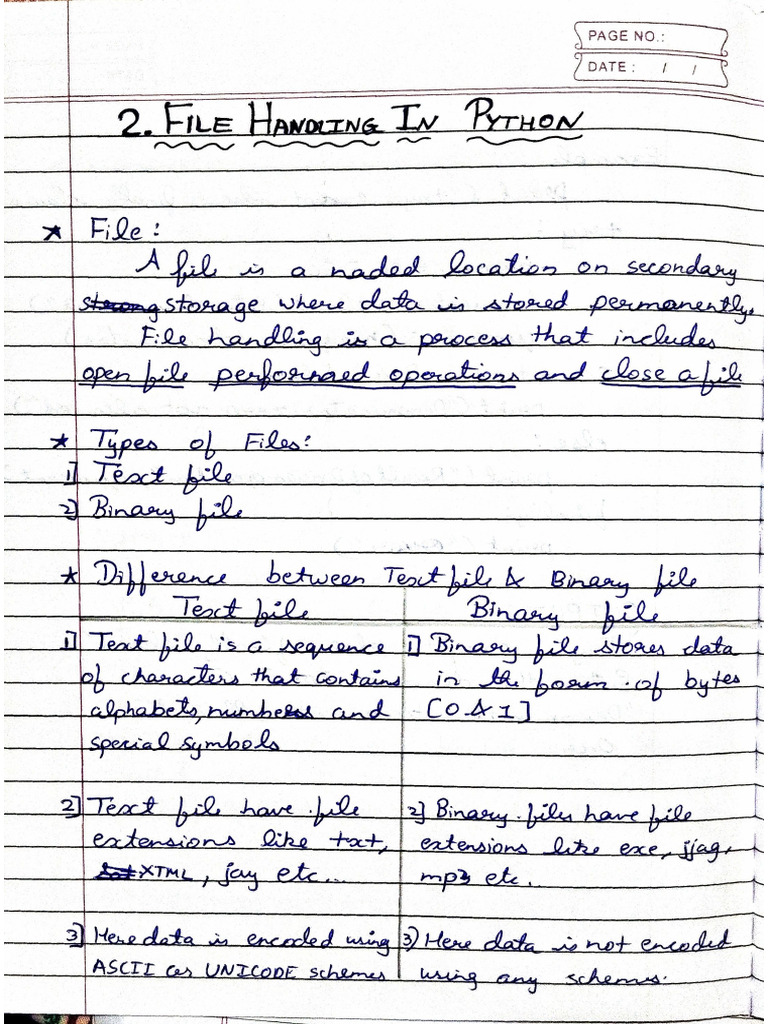 PAGE NO.:
DATE: / /
2. FILE HANDLING IN PYTHON
* File:
A file is a naded location on secondary
storage where data is stored permanently.
File handling is a process that includes
open file performaed operations and close a file
* Types of Files:
1] Text file
2] Binary file
* Difference between Text file & Binary file
Text file Binary file
1] Text file is a sequence 1] Binary file stores data
of characters that contains in the form of bytes
alphabets, numbers and [0 & 1]
special symbols
2] Text file have file 2] Binary files have file
extensions like txt, extensions like exe, jjag,
XTML, jay etc... mp3 etc..
3] Here data is encoded using 3) Here data is not encoded
ASCII or UNICODE schemes using any schemes.